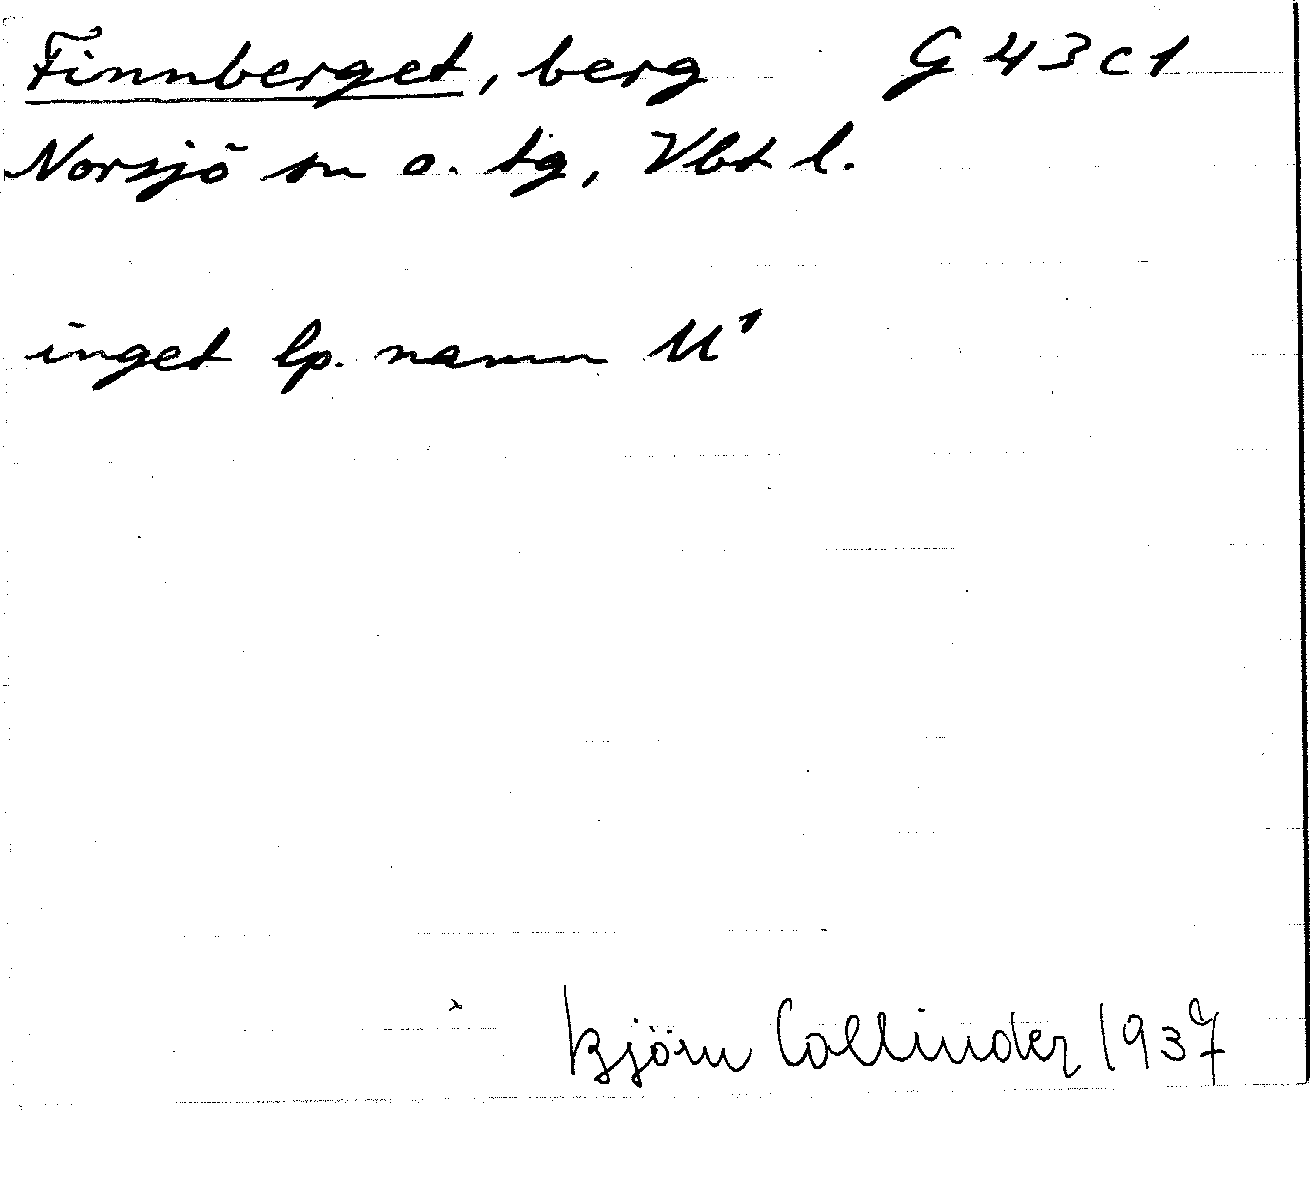 Finnberget, berg G 43 c 1
Norsjö sn o. tg, Vbt l.
inget lp. namn M¹
Björn Collinder 1937